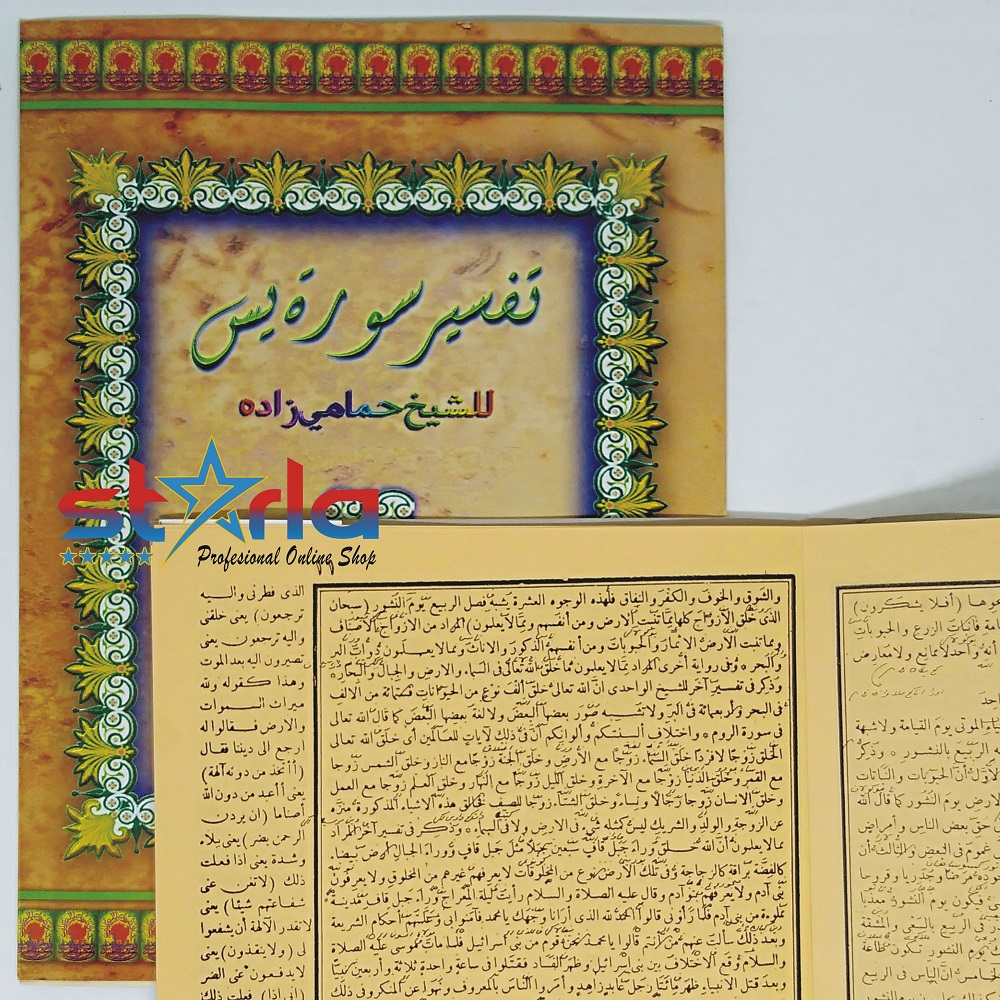 تفسير سورة يس
للشيخ حمامي زاده
starla
Profesional Online Shop
الذى فطرنى واليه
ترجعون) يعنى خلقنى
واليه ترجعون يعنى
تصيرون اليه بعد الموت
وهذا كقوله ولله
ميراث السموات
والارض فقالوا له
ارجع الى ديننا فقال
(أأتخذ من دونه آلهة)
يعنى أأعبد من دون الله
أصناما (ان يردن
الرحمن بضر) يعنى بلاء
وشدة يعنى اذا فعلت
ذلك (لاتغن عنى
شفاعتهم شيئا) يعنى
لاتقدر الآلهة أن يشفعوا
لى (ولا ينقذون) يعنى
لايدفعون عنى الضر
(انى اذا) فعلت ذلك
والشوق والخوف والكفر والنفاق فلهذه الوجوه العشرة يشبه فصل الربيع يوم النشور (سبحان
الذى خلق الازواج كلها مما تنبت الارض ومن أنفسهم ومما لا يعلمون) المراد من الازواج الاصناف
ومما تنبت الارض الاثمار والحبوبات ومن أنفسهم الذكور والاناث ومما لا يعلمون دواب البر
والبحر وفى رواية أخرى المراد مما لا يعلمون مما خلق الله تعالى فى السماء والارض والجبال والبحار
وذكر فى تفسير آخر للشيخ الواحدى ان الله تعالى خلق ألف نوع من الحيوانات ستمائة من الالف
فى البحر وأربعمائة فى البر ولا تشبه صور بعضها البعض ولا لغة بعضها البعض كما قال الله تعالى
فى سورة الروم واختلاف ألسنتكم وألوانكم ان فى ذلك لآيات للعالمين أى خلق الله تعالى
الخلق زوجا لا فردا خلق السماء زوجا مع الارض وخلق الجنة زوجا مع النار وخلق الشمس زوجا
مع القمر وخلق الدنيا زوجا مع الآخرة وخلق الليل زوجا مع النهار وخلق العلم زوجا مع العمل
وخلق الانسان زوجا رجالا ونساء وخلق الشتاء زوجا للصيف فخالق هذه الاشياء المذكورة منزه
عن الزوجة والولد والشريك ليس كمثله شىء فى الارض ولا فى السماء وذكر فى تفسير آخر المراد
مما لا يعلمون أن الله خلق وراء جبل قاف سبعين جبلا مثل جبل قاف ووراء الجبال أرض بيضاء
كالفضة براقة كالزجاجة وفى تلك الارض نوع من المخلوقات لا يعرفهم غيرهم من المخلوق ولا يعرفون
بنى آدم ولا يعرفهم بنو آدم وقال عليه الصلاة والسلام رأيت ليلة المعراج وراء جبل قاف مدينة
مملوءة من بنى آدم فلما رأونى قالوا الحمد لله الذى أرانا وجهك يا محمد فآمنوا بى وعلمتهم أحكام الشريعة
وبعد ذلك سألت عنهم من أنتم قالوا يا محمد نحن قوم من بنى اسرائيل فلما مات موسى عليه الصلاة
والسلام وقع الاختلاف بين بنى اسرائيل وظهر الفساد فقتلوا فى ساعة واحدة ثلاثة وأربعين نبيا
وبعد قتل الانبياء ظهر مائتا رجل عابد زاهد وأمروا الناس بالمعروف ونهوا عن المنكر وفى ذلك
(أفلا يشكرون)
الزرع والحبوبات
ولا معارض
الموتى يوم القيامة
بالنشور وذكر
الحبوبات والنباتات
الارض يوم النشور كما قال الله
حق بعض الناس وأمراض
فى البعض والثالث أن
فيكون يوم النشور معذبا
فى الربيع بالسعى والمشقة
يوم النشور
الناس فى الربيع